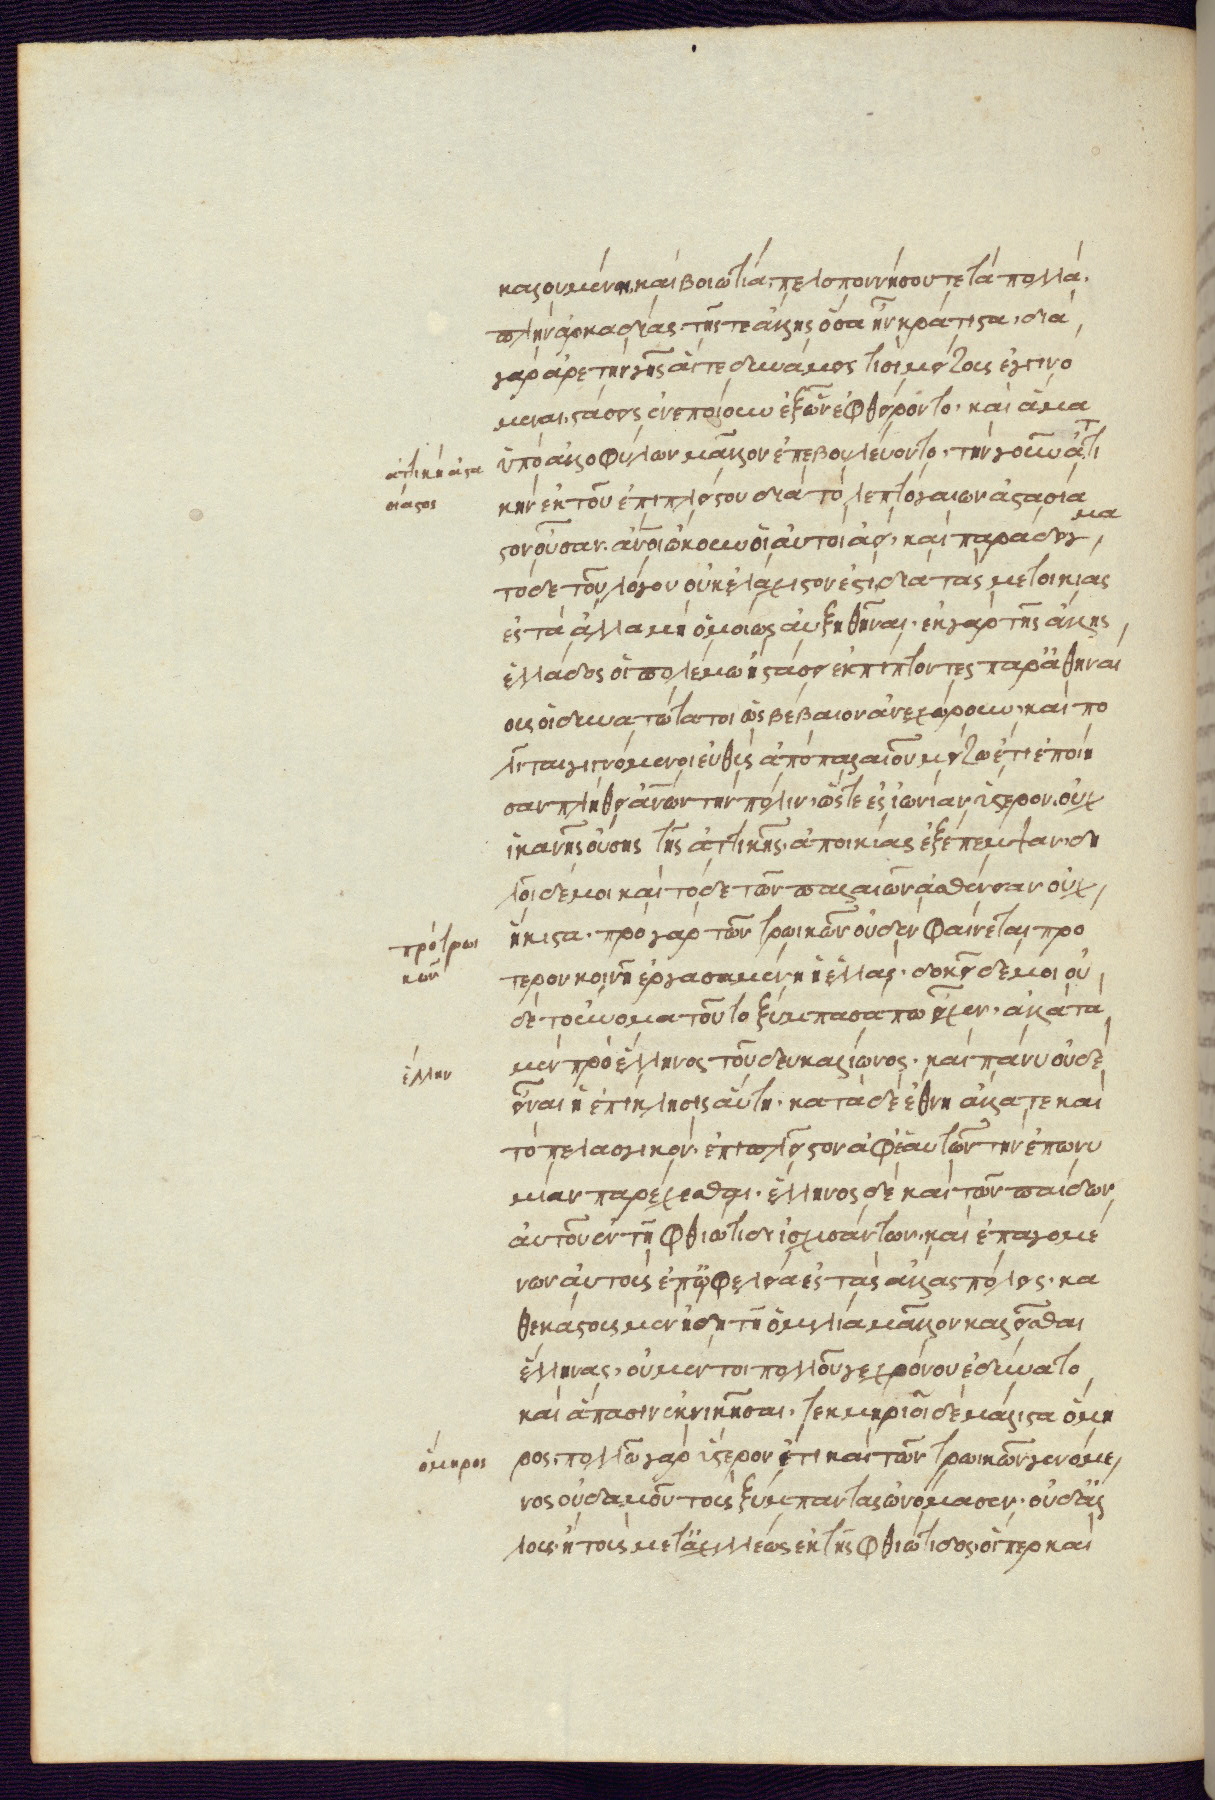 καλουμένη, καὶ βοιωτία· πελοποννήσου τε τὰ πολλὰ·
πλὴν ἀρκαδίας· τῆς τε ἄλλης ὅσα ἦν κράτιστα· διὰ
γὰρ ἀρετὴν γῆς αἵ τε δυνάμεις τισὶ μείζους ἐγγινό
μεναι, στάσεις ἐνεποίουν ἐξ ὧν ἐφθείροντο· καὶ ἅμα
ἀττικὴ ἀστα
ὑπὸ ἀλλοφύλων μᾶλλον ἐπεβουλεύοντο· τὴν γοῦν ἀττι
σίαστος
κὴν ἐκ τοῦ ἐπιπλεῖστον διὰ τὸ λεπτόγαιων ἀστασία
στον οὖσαν· ἄνοι ὤκουν οἱ αὐτοὶ ἀεί· καὶ παράδειγμα
τόδε τοῦ λόγου οὐκ ἐλάχιστον ἐστὶ, διὰ τὰς μετοικίας
ἐς τὰ ἄλλα μὴ ὁμοίως αὐξηθῆναι· ἐκ γὰρ τῆς ἄλλης
ἑλλάδος οἱ πολέμω ἢ στάσει ἐκπίπτοντες παρ' ἀθηναί
ους οἱ δυνατώτατοι ὡς βέβαιον ἀνεχώρουν· καὶ πο
λῖται γιγνόμενοι εὐθὺς ἀπὸ παλαιοῦ μείζω ἔτι ἐποίη
σαν πλήθει ἀνων τὴν πόλιν· ὥστε ἐς ἰωνίαν ὕστερον, οὐχ
ἱκανῆς οὔσης τῆς ἀττικῆς· ἀποικίας ἐξέπεμψαν· δη
λοῖ δέ μοι καὶ τόδε τῶν παλαιῶν ἀσθένειαν οὐχ
πρὸ τρωι
ἥκιστα· προ γὰρ τῶν τρωικῶν οὐδὲν φαίνεται πρό
κῶν
τερον κοινῆ ἐργασαμένη ἡ ἑλλάς· δοκεῖ δέ μοι οὐ
δὲ τοὔνομα τοῦτο ξύμπασα πω εἶχεν· ἀλλὰ τὰ
ἕλλην
μὲν πρὸ ἕλληνος τοῦ δευκαλίωνος· καὶ πάνυ οὐδὲ
εἶναι ἡ ἐπίκλησις αὕτη· κατὰ δὲ ἔθνη ἄλλα τε καὶ
τὸ πελασγικόν· ἐπιπλεῖστον ἀφ' ἑαυτῶν τὴν ἐπωνυ
μίαν παρέχεσθαι· ἕλληνος δὲ καὶ τῶν παίδων
αὐτοῦ ἐν τῆ φθιώτιδι ἰσχυσάντων· καὶ ἐπαγομέ
νων αὐτοὺς ἐπ' ὠφελεία ἐς τὰς ἄλλας πόλεις· κα
θεκάστους μὲν ἤδη τῆ ὁμιλία μᾶλλον καλεῖσθαι
ἕλληνας· οὐ μέντοι πολλοῦ γε χρόνου ἐδύνατο
καὶ ἅπασιν ἐκνικῆσαι· τεκμηριοῖ δὲ μάλιστα ὅμη
ὅμηρος
ρος· πολλῶ γὰρ ὕστερον ἔτι καὶ τῶν τρωικῶν γενόμε
νος οὐδαμοῦ τοὺς ξύμπαντας ὠνόμασεν· οὐδ' ἄλ
λους· ἢ τοὺς μετ' ἀχιλλέως ἐκ τῆς φθιώτιδος· οἵπερ καὶ